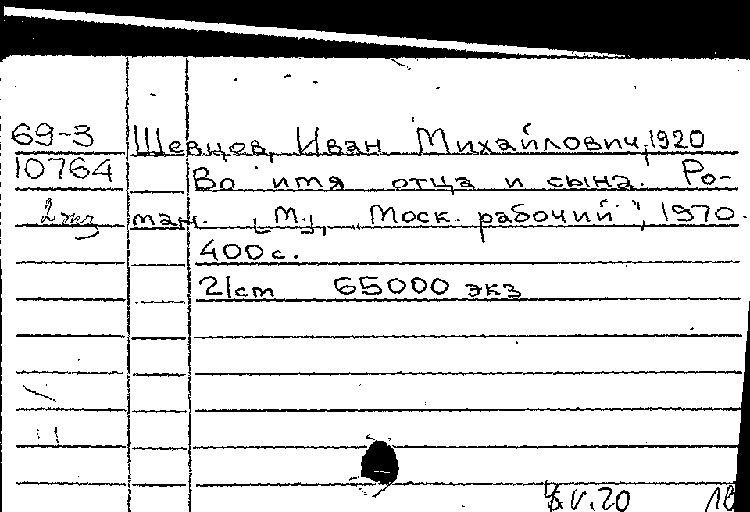 69-3 Шевцов, Иван Михайлович, 1920
10764 Во имя отца и сына. Ро-
2 экз ман. [М.], "Моск. рабочий", 1970.
400 с.
21 cm 65000 экз